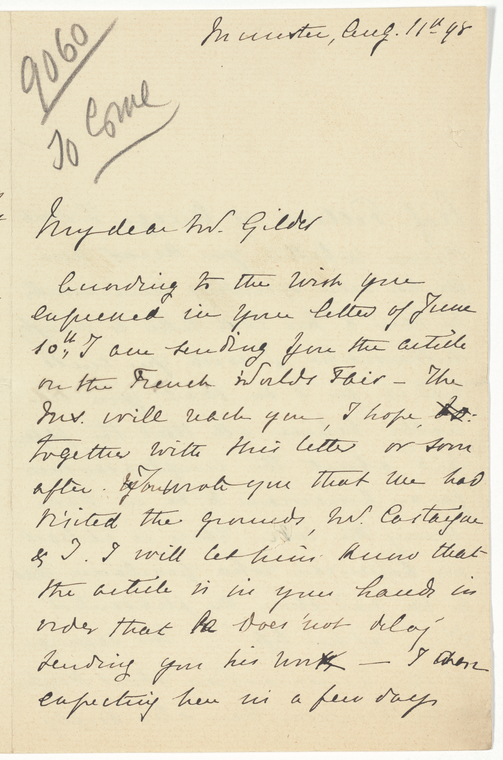 9060
To Come
Munster, Aug. 11th 98
My dear Mr. Gilder
According to the wish you
expressed in your letter of June
10th, I am sending you the article
on the French Worlds Fair – The
Ms. will reach you, I hope,
together with this letter or soon
after. You wrote you that we had
visited the grounds, Mr. Castaigne
& I. I will let him know that
the article is in your hands in
order that he does not delay
sending you his work – I am
expecting here in a few days